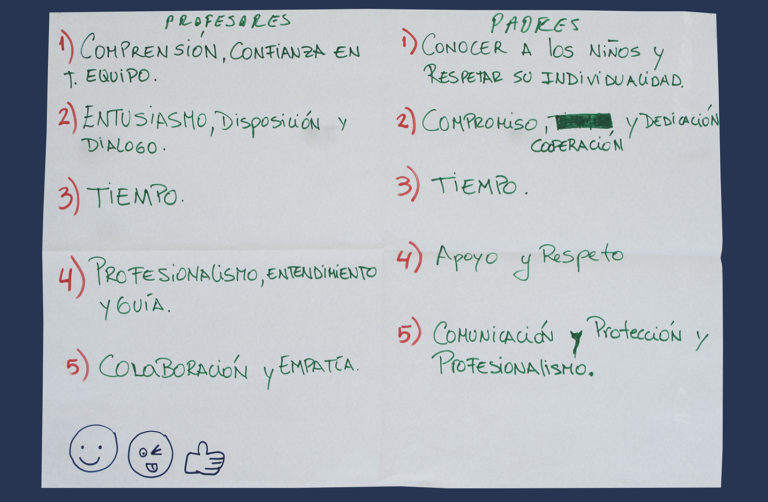 PROFESORES
1) COMPRENSIÓN, CONFIANZA EN
T. EQUIPO.
2) ENTUSIASMO, DISPOSICIÓN Y
DIALOGO.
3) TIEMPO.
4) PROFESIONALISMO, ENTENDIMIENTO
Y GUÍA.
5) COLABORACIÓN y EMPATÍA.
PADRES
1) CONOCER A los NIÑOS y
RESPETAR SU INDIVIDUALIDAD.
2) COMPROMISO, y DEDICACIÓN
COOPERACIÓN
3) TIEMPO.
4) Apoyo y Respeto
5) COMUNICACIÓN y Protección y
PROFESIONALISMO.